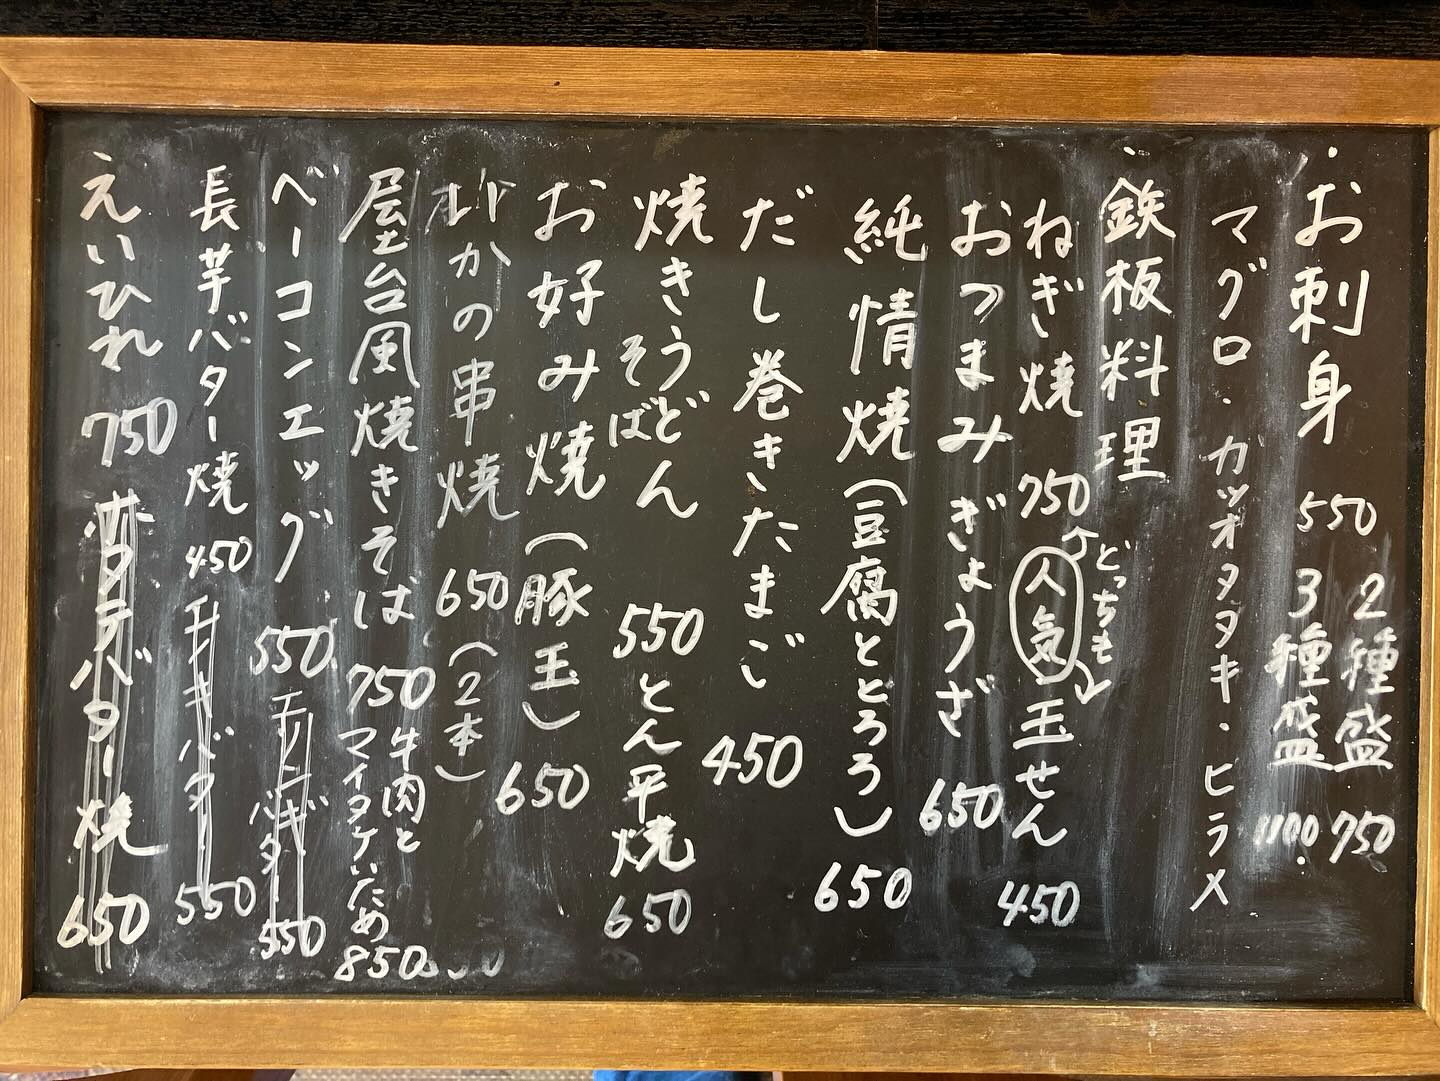 ・お刺身 550
2種盛 750
3種盛 1100
マグロ・カツオタタキ・ヒラメ
・鉄板料理
ねぎ焼 750
どっちも
人気
玉せん 450
おつまみぎょうざ 650
純情焼(豆腐ととろろ) 650
だし巻きたまご 450
焼きうどん
そば
550
とん平焼 650
お好み焼(豚玉) 650
いかの串焼 650(2本)
屋台風焼きそば 750
牛肉と
マイタケいため 850
ベーコンエッグ 550
バター 550
長芋バター焼 450
バター 550
えいひれ 750
ホタテバター焼 650